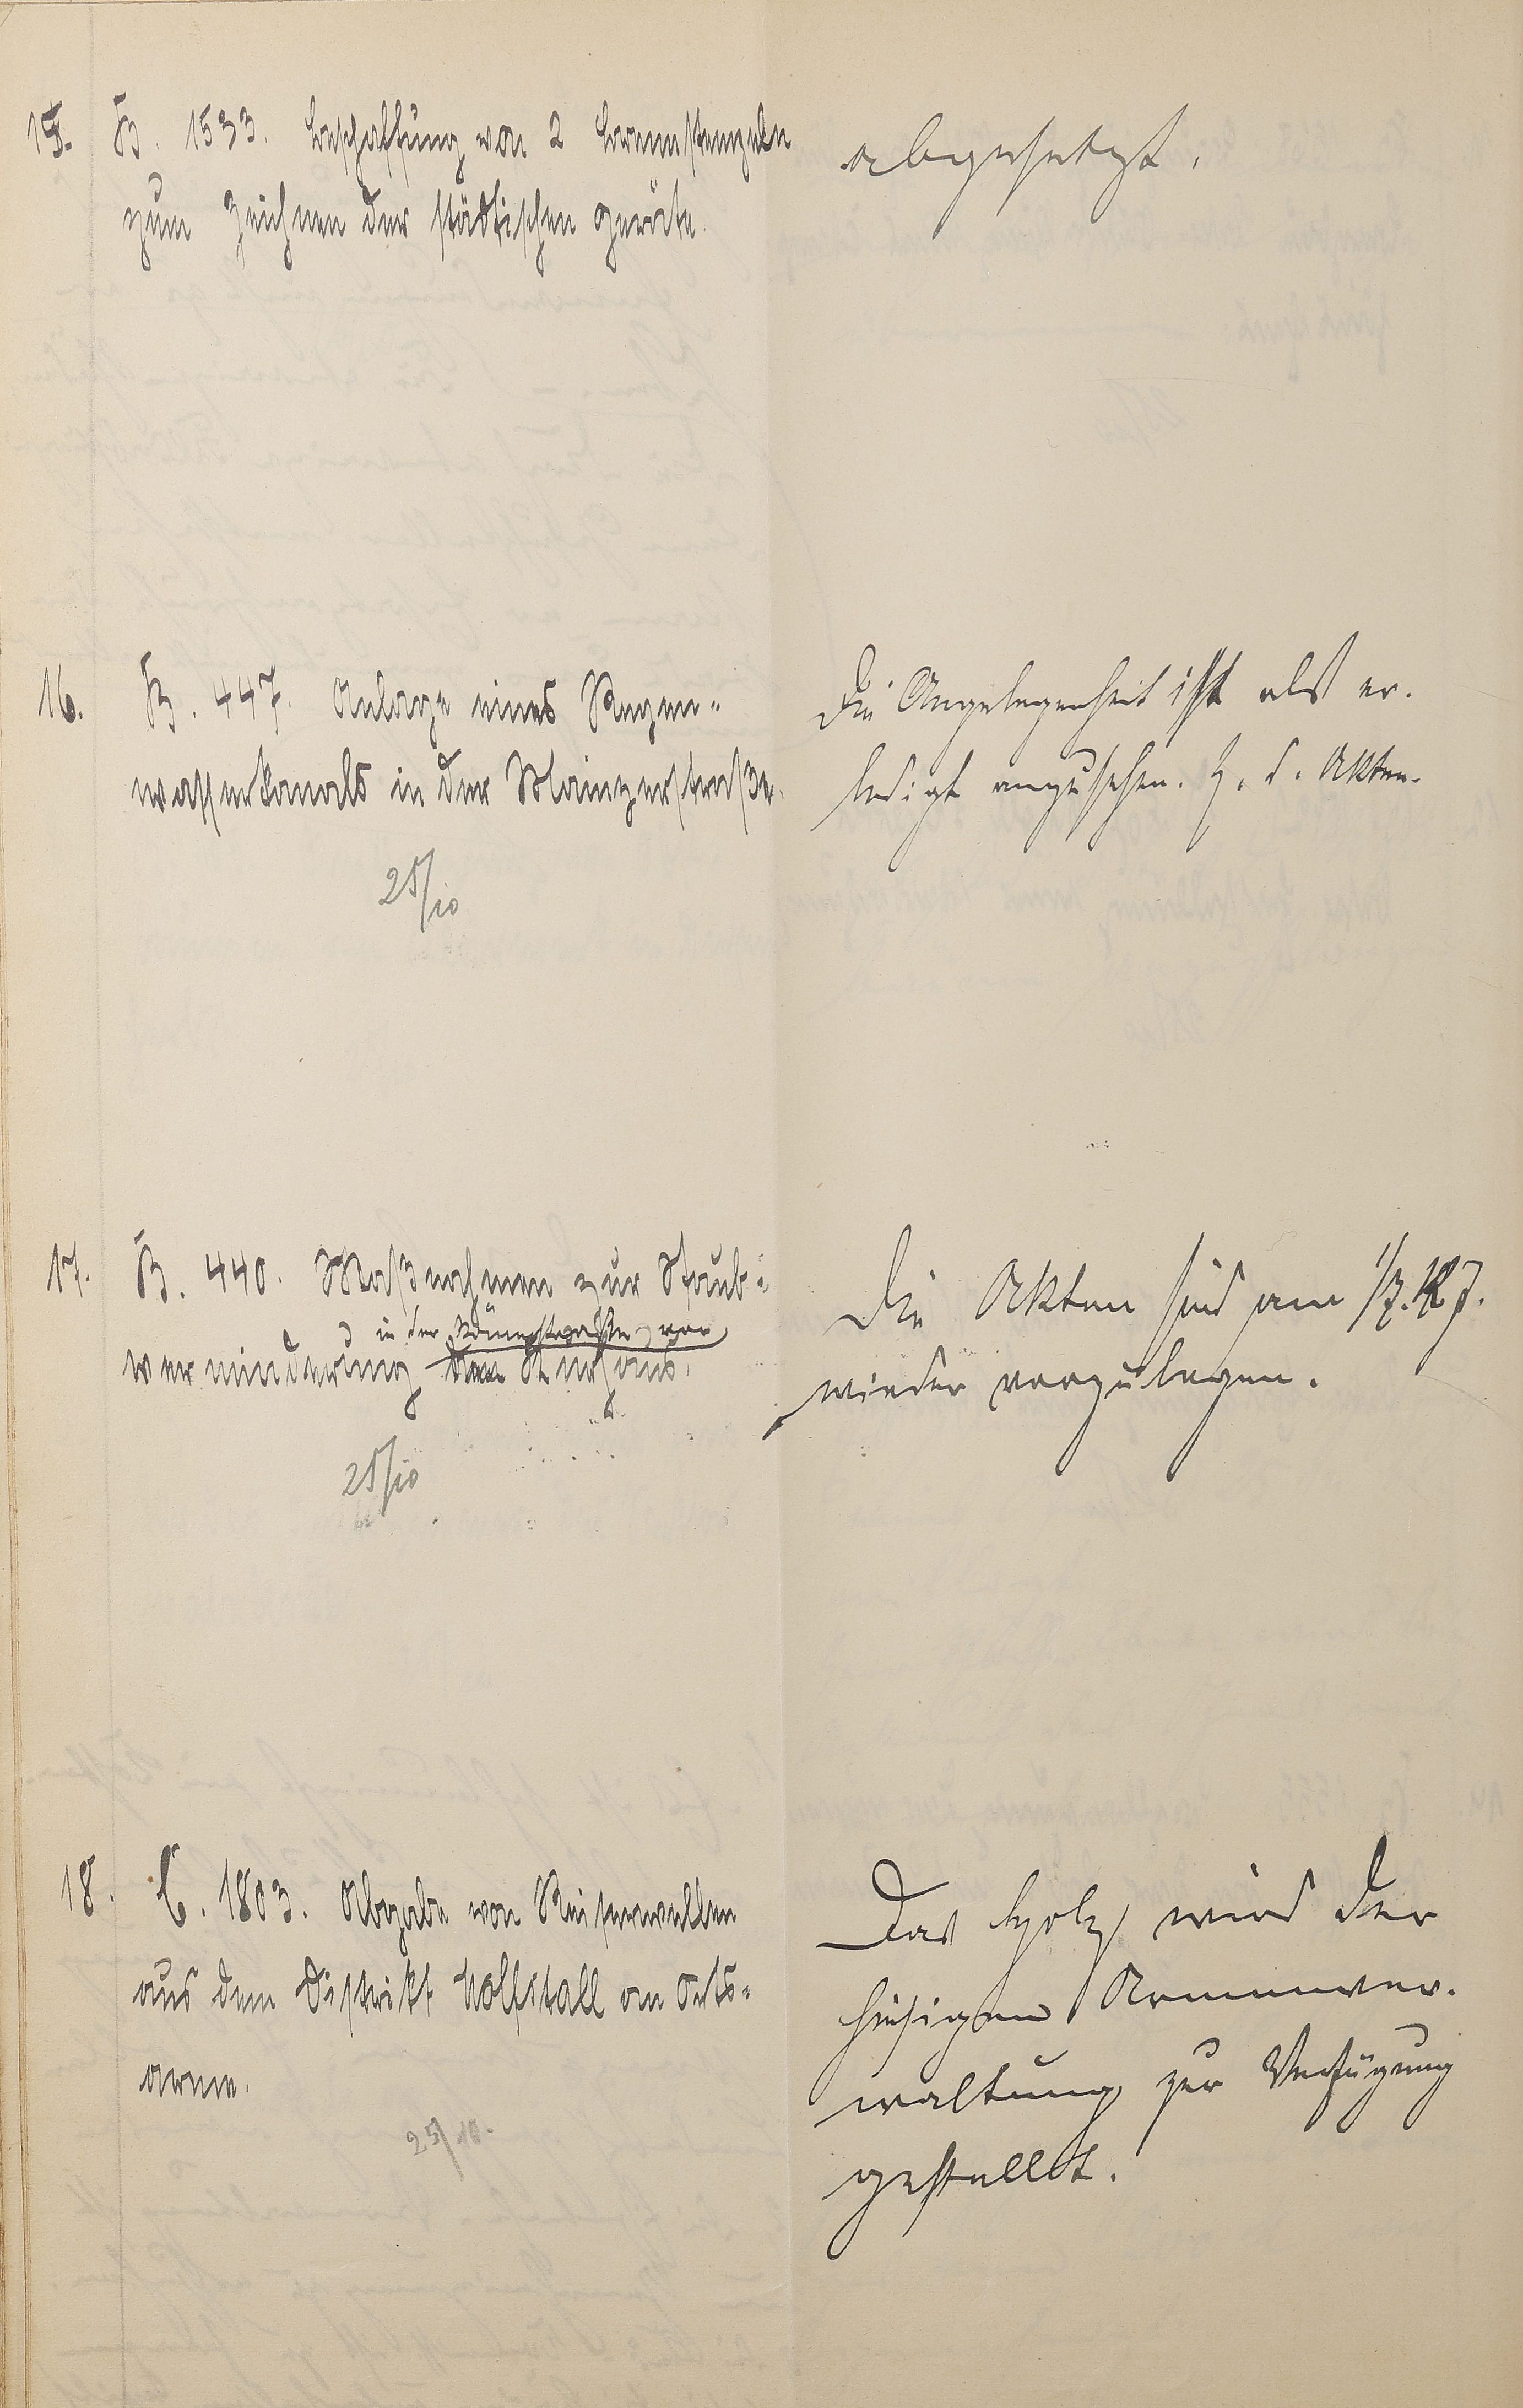 15. B. 1533. Beschaffung von 2 Brennstempeln
zum Zeichnen der städtischen Geräte.
abgesetzt.
16. B. 447. Anlage eines Regen-
wasserkanals in der Mainzerstraße.
25/10
Die Angelegenheit ist als er-
ledigt anzusehen. Z. d. Akten.
17. B. 440. Maßnahmen zur Staub-
in der vor
verminderung dem Kurhaus.
25/10
Die Akten sind am 1/7. J.
wieder vorzulegen.
18. C. 1803. Abgabe von Reiserwellen
aus dem Distrikt Kohlstall an Orts-
arme.
25/10.
Das Holz wird der
hiesigen Armenver-
waltung zur Verfügung
gestellt.